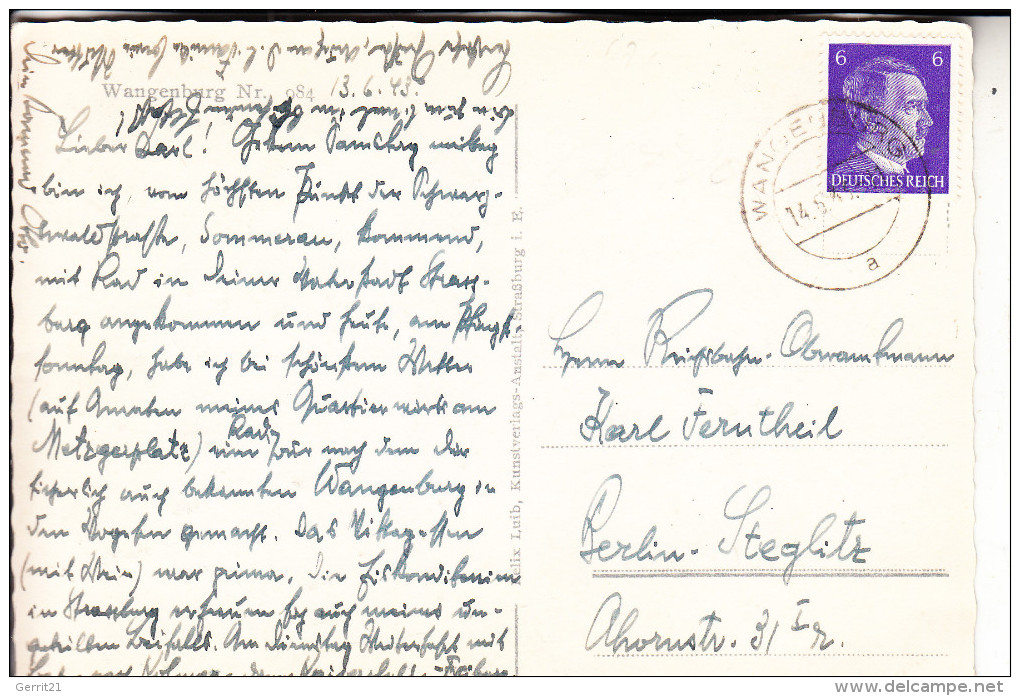 Wangenburg Nr. 084 13.6.43.
Lieber Karl! Gestern Samstag mittag
bin ich, vom höchsten Punkt der Schwarz-
waldstrasse, Sommerau, kommend,
mit Rad in Deiner Vaterstadt Strass-
burg angekommen und heute, am Pfingst-
sonntag, habe ich bei schönstem Wetter
(auf Anraten meines Quartierwirts am
Metzgerplatz) eine Rad Tour nach dem Dir
sicherlich auch bekannten Wangenburg in
den Vogesen gemacht. Das Mittagessen
(mit Wein) war prima. Die Eiskonditoreien
in Strassburg erfreuen sich auch meines un-
geteilten Beifalls. Am Dienstag Weiterfahrt mit
Felix Luib, Kunstverlags-Anstalt, Straßburg i. E.
6 6
DEUTSCHES REICH
WANGENBURG
a
Herrn Reichsbahn-Oberamtmann
Karl Ferntheil
Berlin-Steglitz
Ahornstr. 31 I r.
Gerrit21
www.delcampe.net